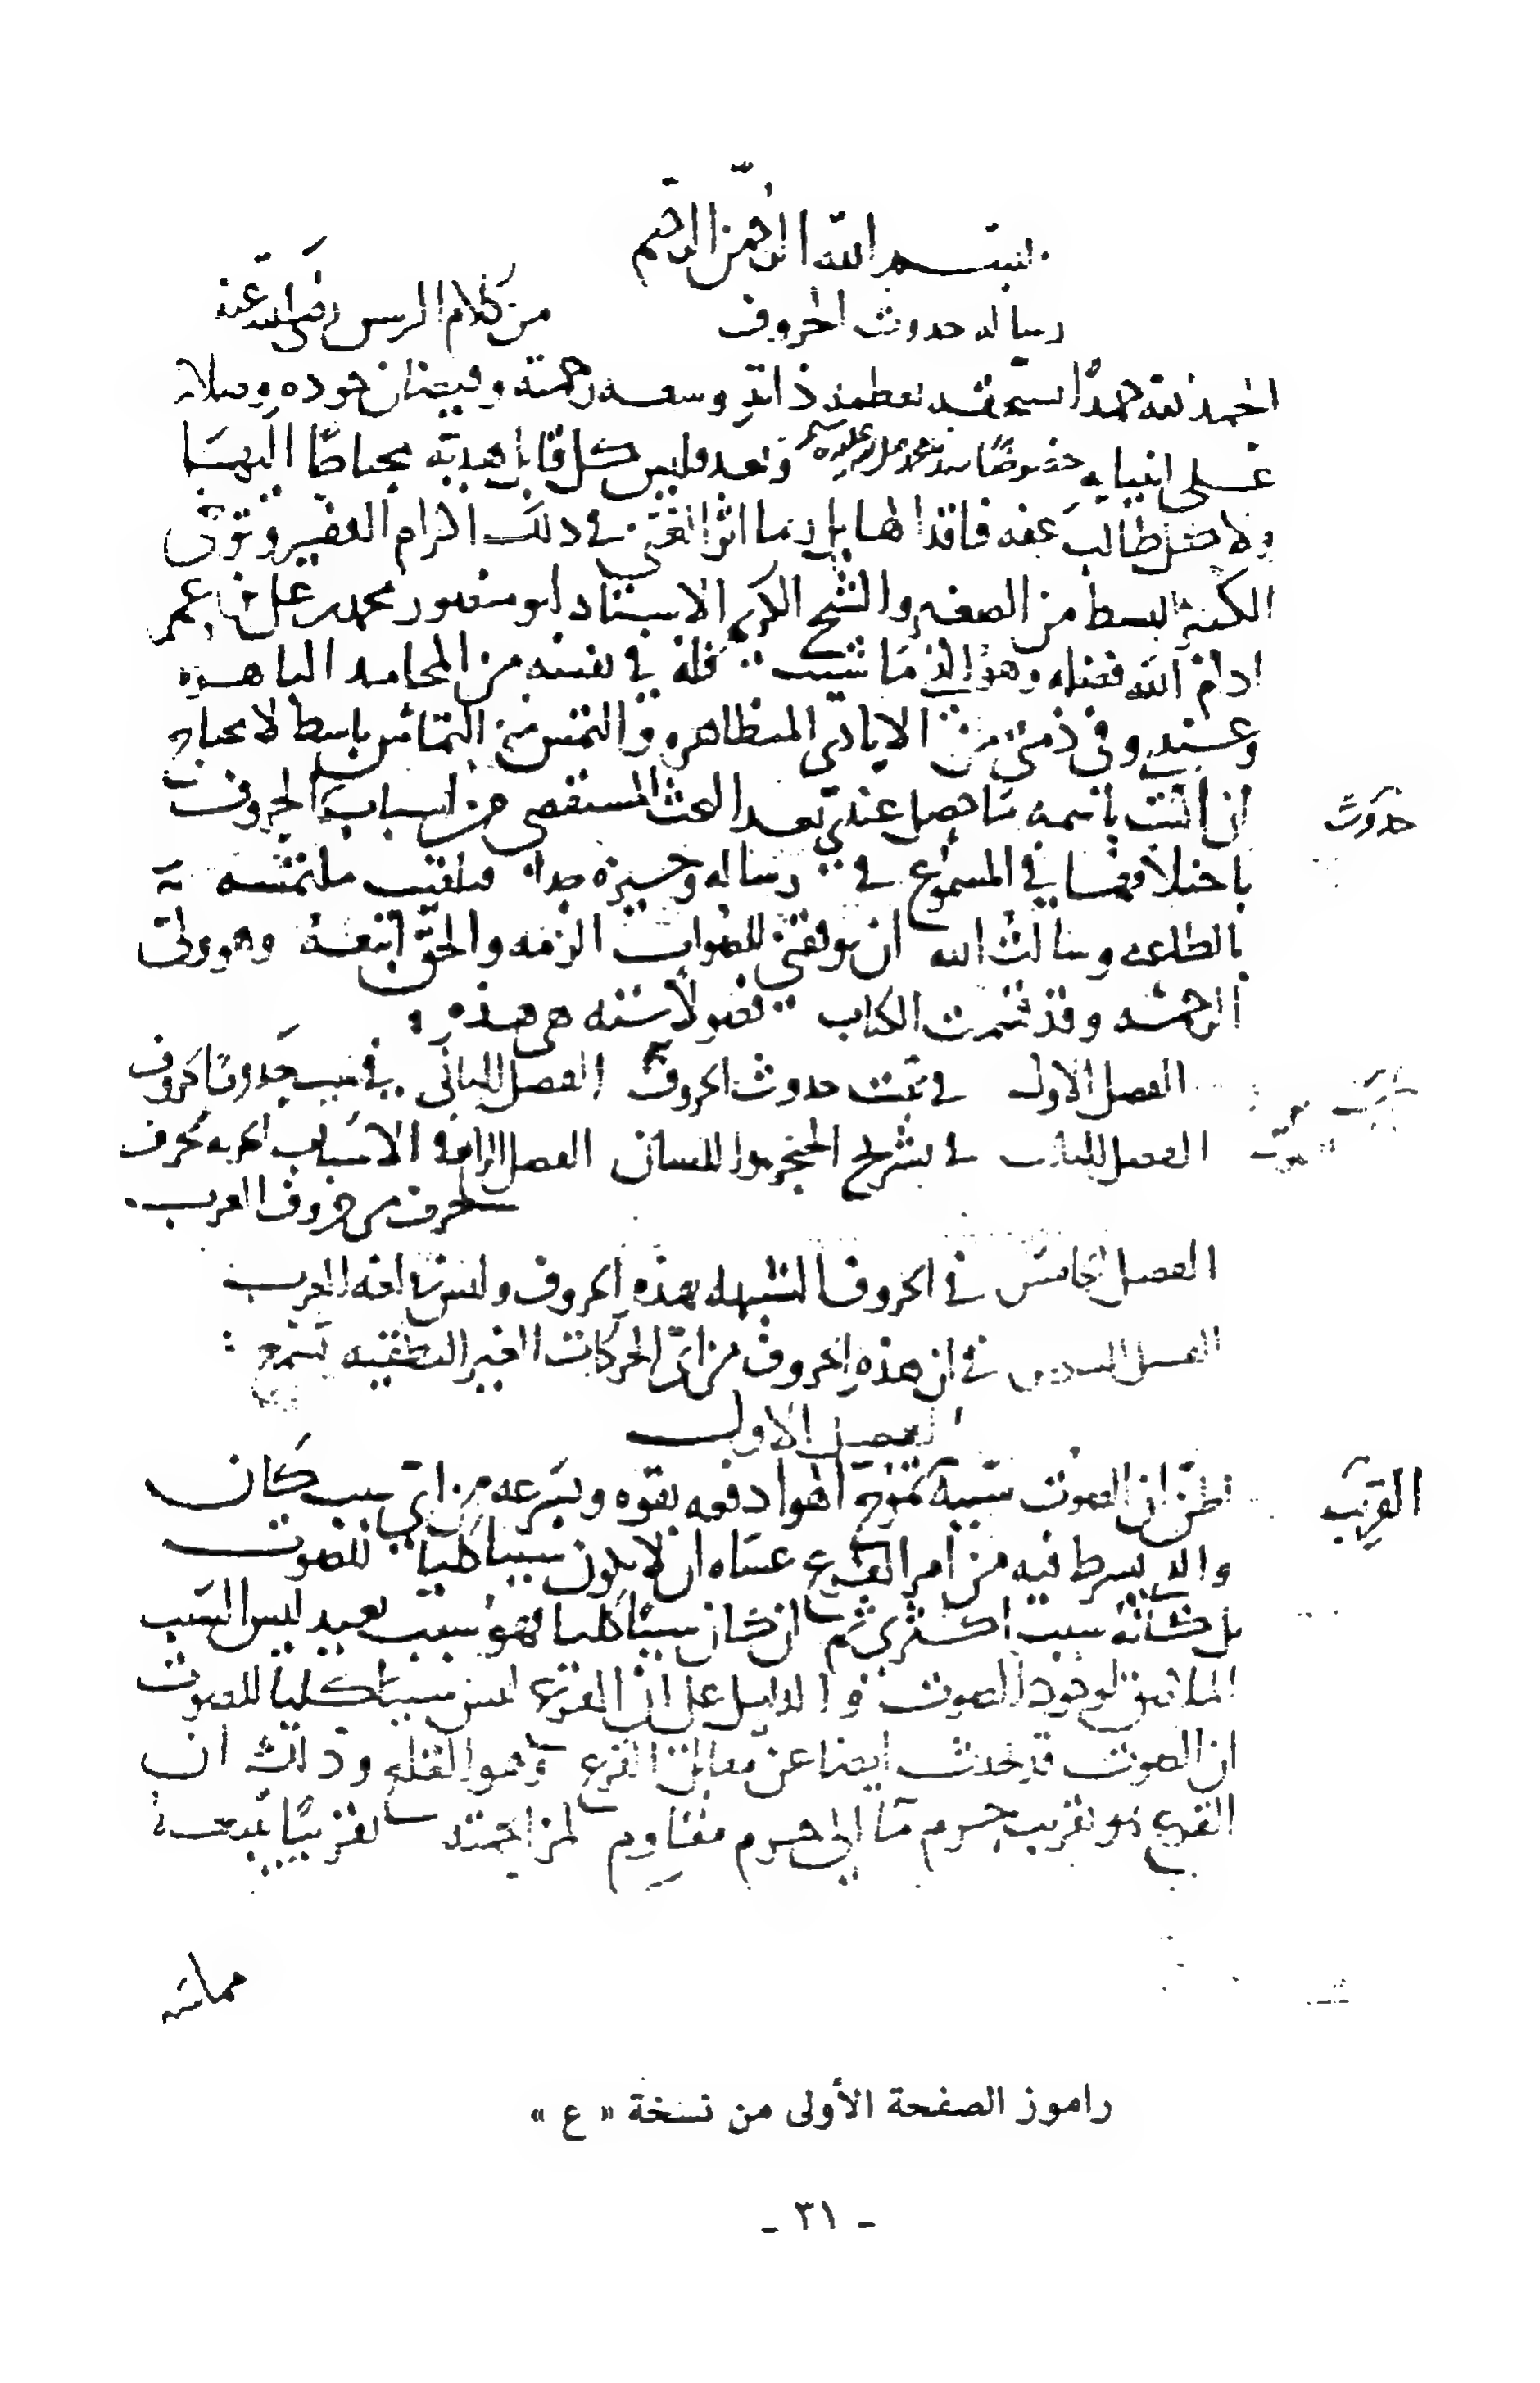 بسم الله الرحمن الرحيم
رساله حدوث الحروف من كلام الرييس رضى الله عنه
الحمد لله حمدًا يستحقه بعظمة ذاته وسعه رحمته وفيضان جوده وصلاته
على انبيايه خصوصًا سيدنا محمد صلى الله عليه وسلم وبعد فليس كل قابل هديه محتاجًا اليها
ولا كل طالب عنه فاقدا لها بل ربما اثر الغنى في ذلك اكرام الفقير وتوخى
الكبير البسط من الصغير والشيخ الكريم الاستاد ابو منصور محمد بن على بن عمر
ادام الله فضله وهو الذي ما شيت فله في نفسه من المحامد الباهره
وعندي وفي ذمتي من الايادي المتظاهره والتمس مني التماس باسط لا محتاج
ان اثبت باسمه ما حصل عندي بعد البحث المستقصى من اسباب الحروف
حدوث
باختلافها في المسموع في رساله وجيزه جدا فتلقيت ملتمسه
بالطاعه وسالت الله ان يوفقني للصواب الزمه والحق اتبعه وهو ولي
الرحمه وقد قسمت الكتاب فصولًا سته هي هذه
الفصل الاول في سبب حدوث الصوت الفصل الثاني في سبب حدوث الحروف
الفصل الثالث في تشريح الحنجره واللسان الفصل الرابع في الاسباب الجزيه لحرف
حرف من حروف العرب
الفصل الخامس في الحروف الشبيهه بهذه الحروف وليس في لغه العرب
الفصل السادس في ان هذه الحروف من اي الحركات الغير النطقيه تسمع
الفصل الاول
نظن ان الصوت سببه تموج الهوا دفعه بقوه وبسرعه من اي سبب كان
القريب
والذي يشرط فيه من امر القرع عساه ان لا يكون سببا كليا للصوت
بل كانه سبب اكثري ثم ان كان سببا كليا فهو سبب بعيد ليس السبب
الملاصق لوجود الصوت والدليل على ان القرع ليس سببا كليا للصوت
ان الصوت قد يحدث ايضا عن مقابل القرع وهو القلع وذلك ان
القرع هو تقريب جرم ما الى جرم مقاوم لمزاحمته تقريبًا تتبعه
مماسه
راموز الصفحة الأولى من نسخة « ع »
ـ ٣١ ـ